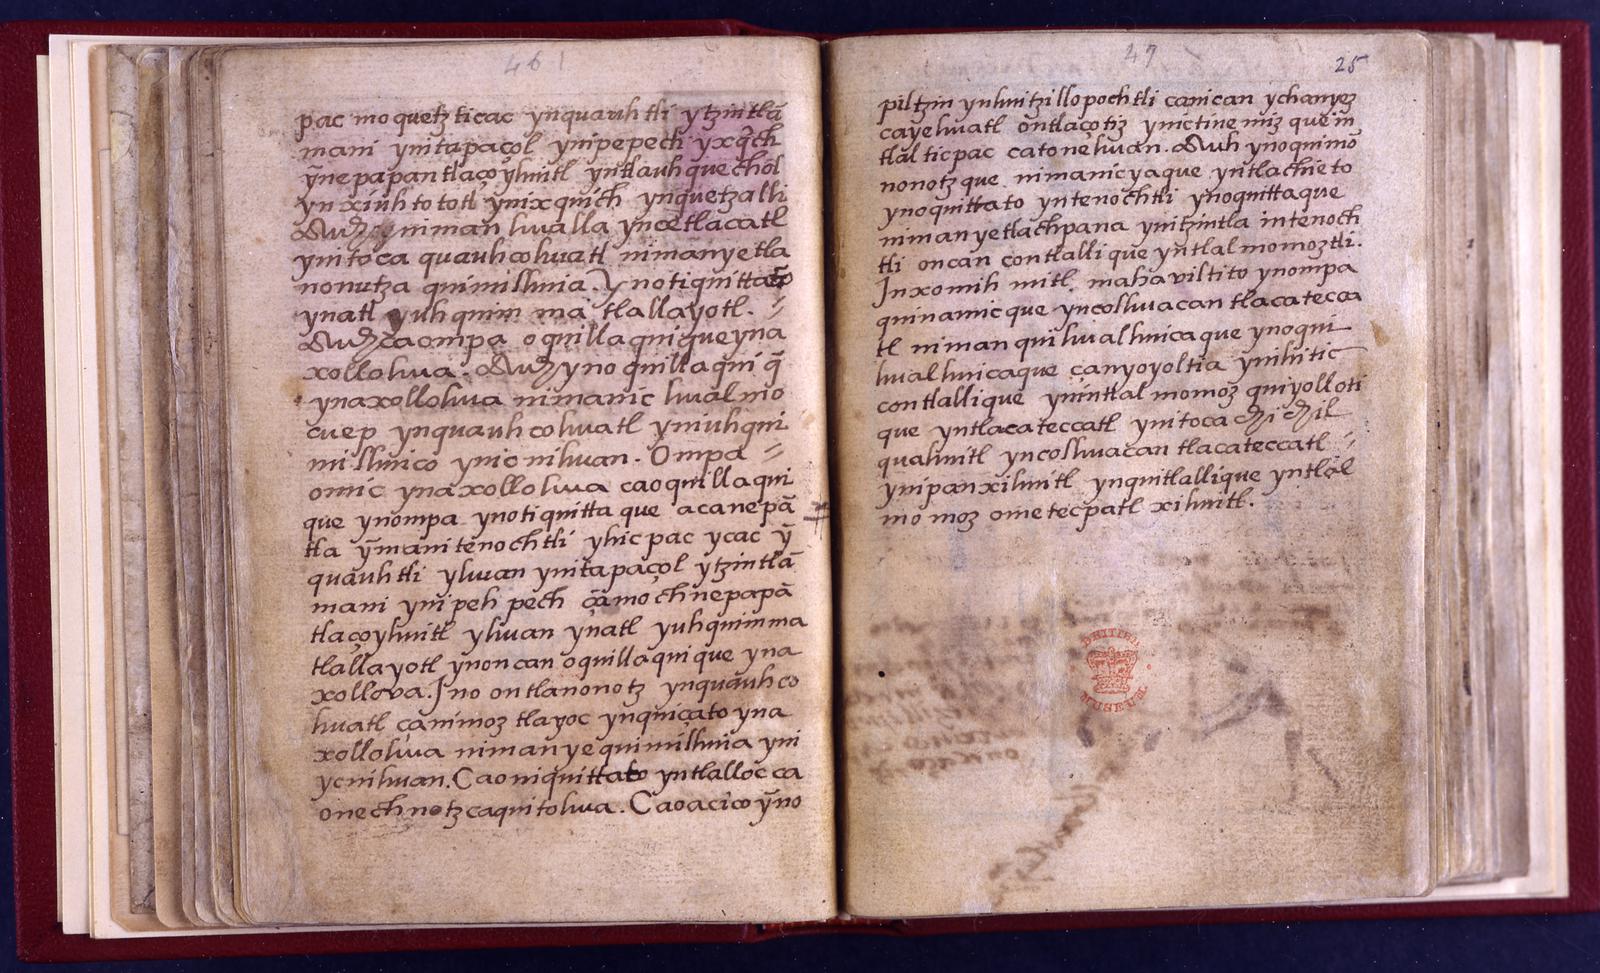 461
pac moquetzticac ynquauhtli ytzintlā
mani ynitapaçol ynipepech yxq̄ch
ȳnepapan tlaçoyhuitl yntlauhquechol
yn xiuhtototl ynixquich ynquetzalli
Auh niman hualla yncetlacatl
ynitoca quauhcohuatl nimanyetla
nonutza quimilhuia. Ynotiquittato
ynatl yuhquim ma tlallayotl.
Auh caompa oquillaquiqueyna
xollohua. Auh ynoquillaqui q̄
ynaxollohua nimanic hualmo
cuep ynquauhcohuatl yniuhqui
milhuico ynicnihuan. Ompa
omic ynaxollohua caoquillaqui
que ynompa ynotiquittaque acanepā
tla ȳmani tenochtli yhicpac ycac ȳ
quauhtli yhuan ynitapaçol ytzintlā
mani ynipehpech çāmochnepapā
tlaçoyhuitl yhuan ynatl yuhquimma
tlallayotl ynoncan oquillaquique yna
xollova. Ino ontlanonotz ynquauhco
huatl canimoz tlayoc ynquiçato yna
xollohua nimanyequimilhuia yni
ycnihuan. Caoniquittato yntlalloc ca
onechnotz caquitohua. Caoacico ȳno
47
25
piltzin ynhuitzillopochtli canican ychanyez
cayehuatl ontlaçotiz ynictinemiz quein
tlalticpac catonehuan. Auh ynoquimo
nonotzque nimanicyaque yntlachieto
ynoquittato yntenochtli ynoquittaque
nimanyetlachpana ynitzintla intenoch
tli oncan contlallique yntlalmomoztli.
Inxomihmitl mahaviltito ynompa
quinamicque yncolhuacan tlacatecca
tl niman quihualhuicaque ynoqui
hualhuicaque çanyoyoltia ynihitic
contlallique ynintlalmomoz quiyolloti
que yntlacateccatl ynitoca chichil
quahuitl yncolhuacan tlacateccatl
ynipanxihuitl ynquitlallique yntlal
momoz ometecpatl xihuitl.
BRITISH
MUSEUM